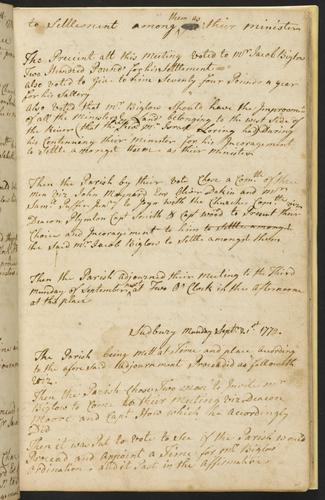 to Settlement among them as their minister
The Precent att this Meeting voted to Mr. Jacob Biglow
Two Hundred Pounds for his Settlement
also voted to Give to him Seventy four Pounds a year
for his Sallery
Also voted that Mr. Biglow Should have the Improvement
of all the Ministeral Land belonging to the west Side of
the River (that the Revd. Mr. Israel Loring had During
his Continuancy their Minister for his Incoragement
to Settle amongst them as their Minister
Then the Parish by their vote Chose a Comtt. of three
men viz John Maynard Esqr and Mr.
Saml. to Joyn with the Church Comtt. viz
Deacon Plymton Capt Smith & Capt wood to Present their
Choice and Incoragement to him to settle amongst
the Said Mr. Jacob Biglow to Settle amongst them
Then the Parish adjourned their Meeting to the Third
Monday of September at Two O Clock in the afternoon
at the place
Sudbury Monday Septr. 21st 1772.
The Parish being mett at Time and place according
to the afore said adjournment Proceedid as followeth
viz.
Then the Parish Chose Two men to Invite Mr.
Biglow to Come to their Meeting viz Deacon
and Capt How which he accordingly
Did
Then it was Put to vote to See if the Parish would
Proceed and appoint a Time for Mr. Biglow
Ordination & it Past in the Affirmative